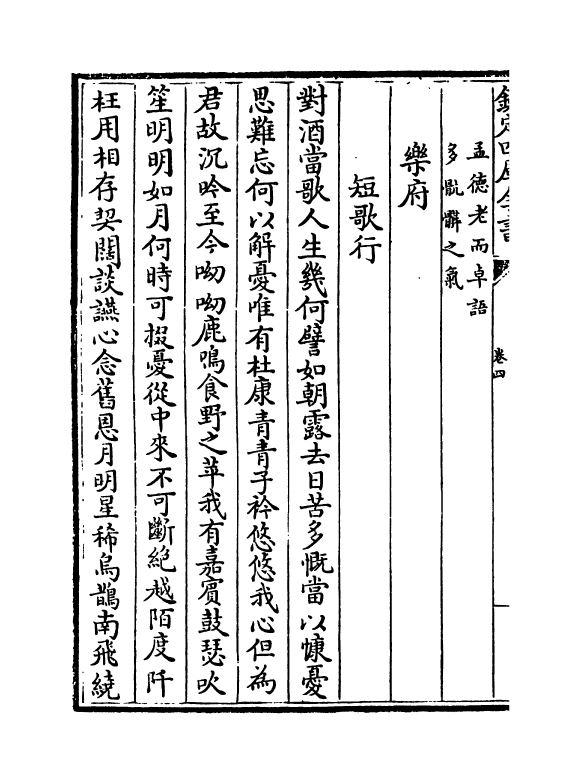 欽定四庫全書
卷四
孟德老而卓語
多骯髒之氣
樂府
短歌行
對酒當歌人生幾何譬如朝露去日苦多慨當以慷憂
思難忘何以解憂唯有杜康青青子衿悠悠我心但為
君故沉吟至今呦呦鹿鳴食野之苹我有嘉賓鼓瑟吹
笙明明如月何時可掇憂從中來不可斷絕越陌度阡
枉用相存契闊談讌心念舊恩月明星稀烏鵲南飛繞